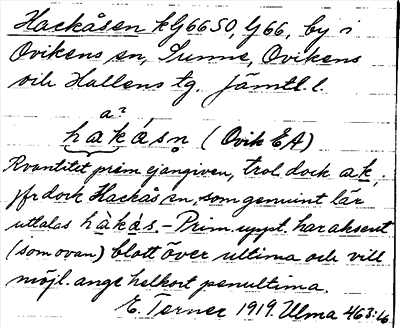 Hackåsen kG66SO, G66, by i
Ovikens sn, Sunne, Ovikens
och Hallens tg. Jämtl. l.
a?
håkåsn (Ovik EA)
Kvantitet i prim. ej angiven, trol. dock ak,
jfr dock Hackås sn, som genuint lär
uttalas hàkås. - Prim. uppt. har aksent
(som ovan) blott över ultima och vill
möjl. ange helkort penultima.
E. Terner 1919. Ulma 463:16